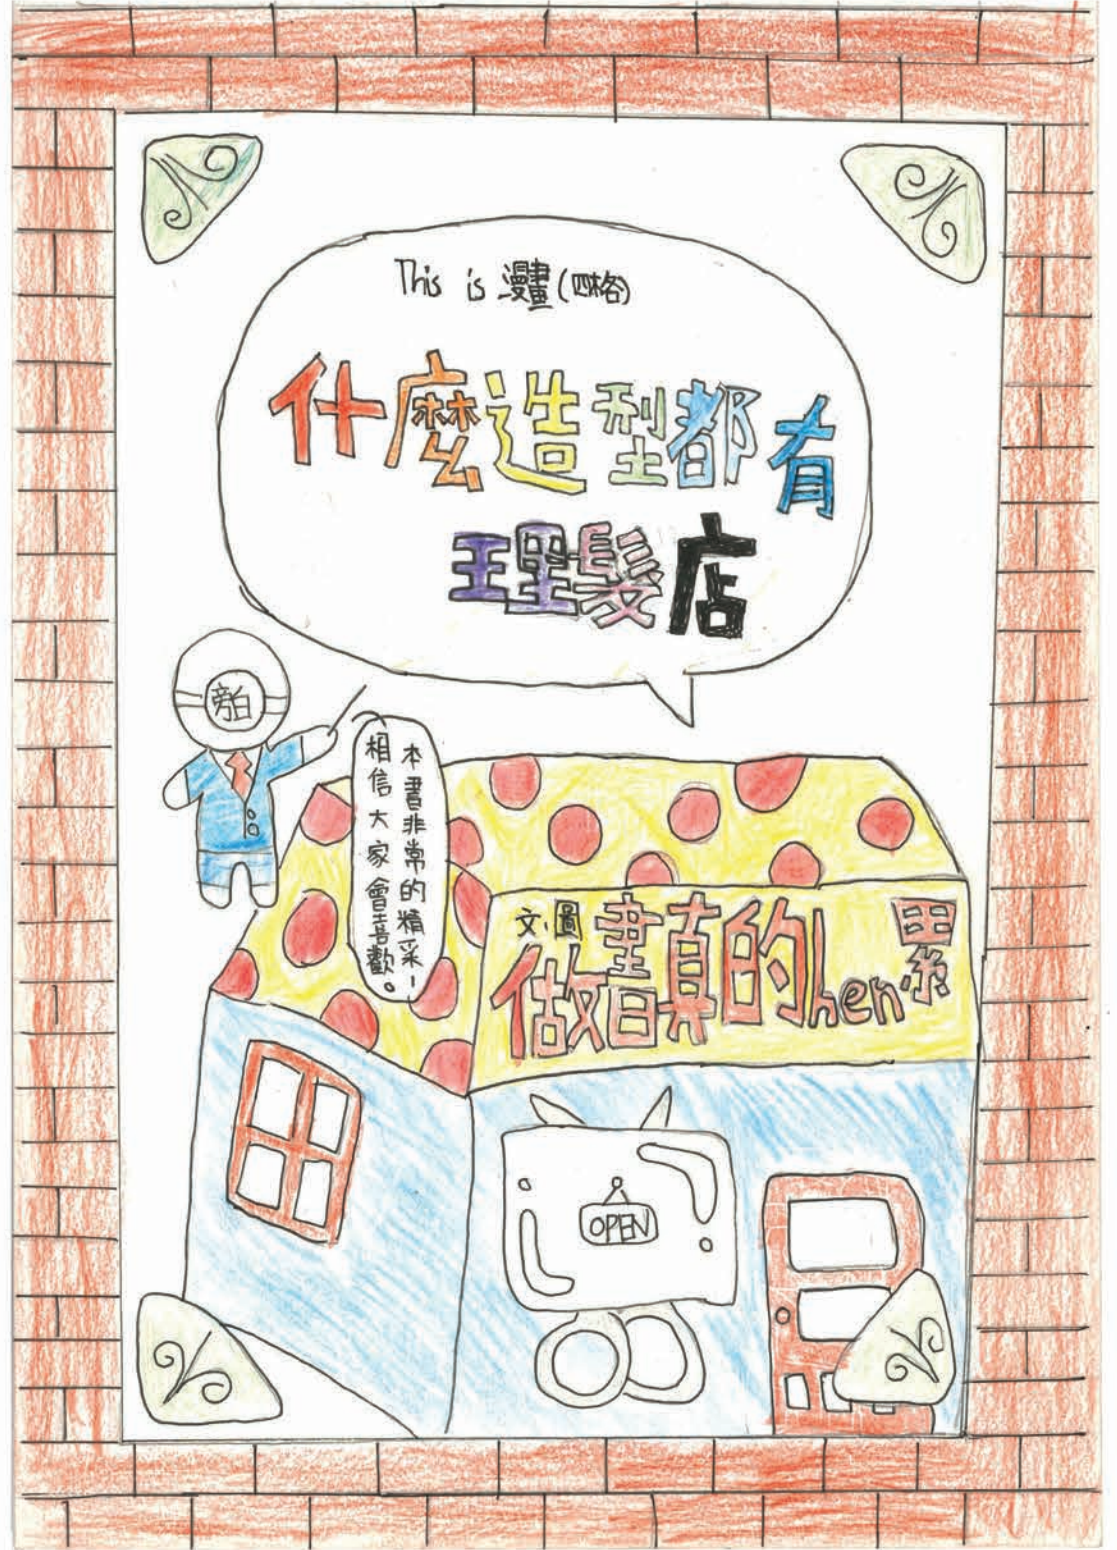 This is 漫畫(四格)
什麼造型都有
理髮店
旁白
本書非常的精采!
相信大家會喜歡。
文、圖
做書真的hen累
OPEN